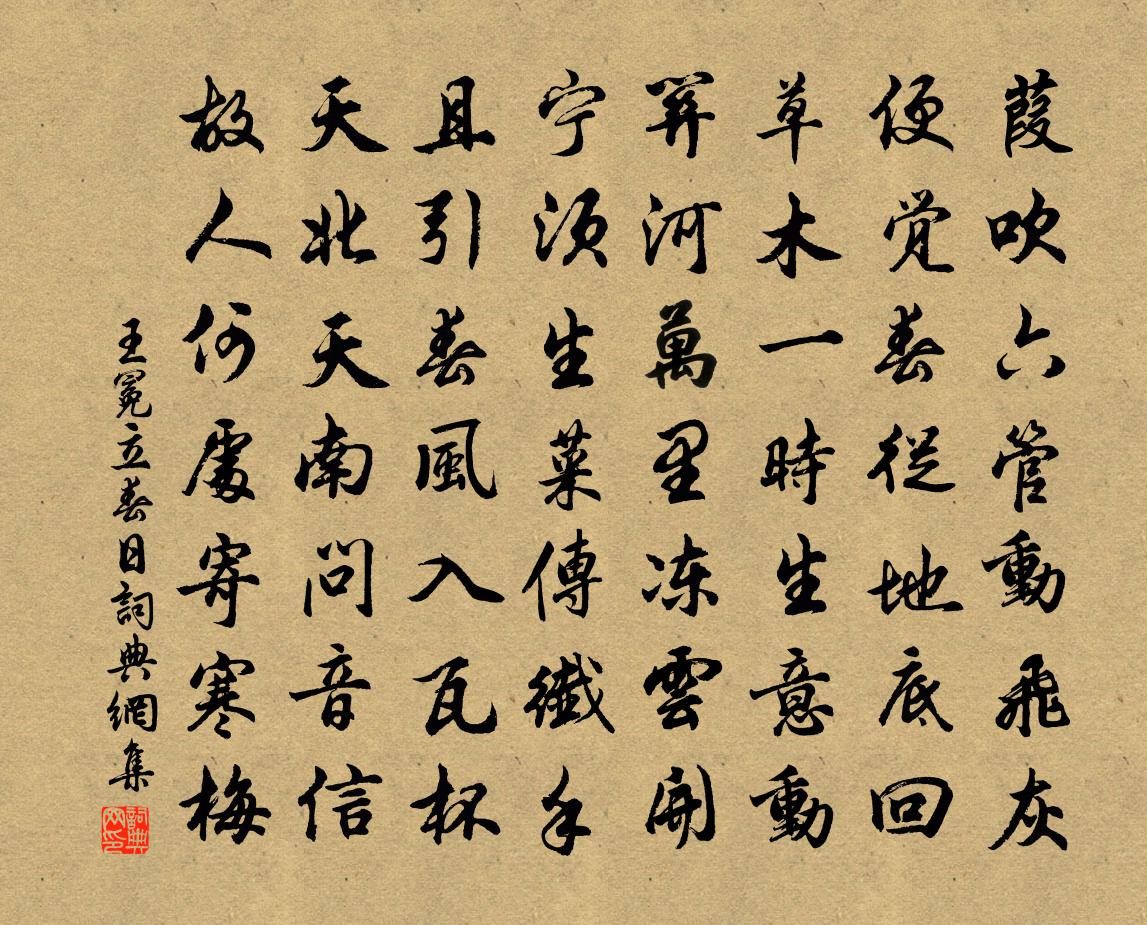 葭吹六管動飛灰
便觉春從地底回
草木一時生意動
关河萬里冻雲開
宁须生菜傳纖手
且引春風入瓦杯
天北天南問音信
故人何處寄寒梅
王冕立春日詞典網集
詞典网印